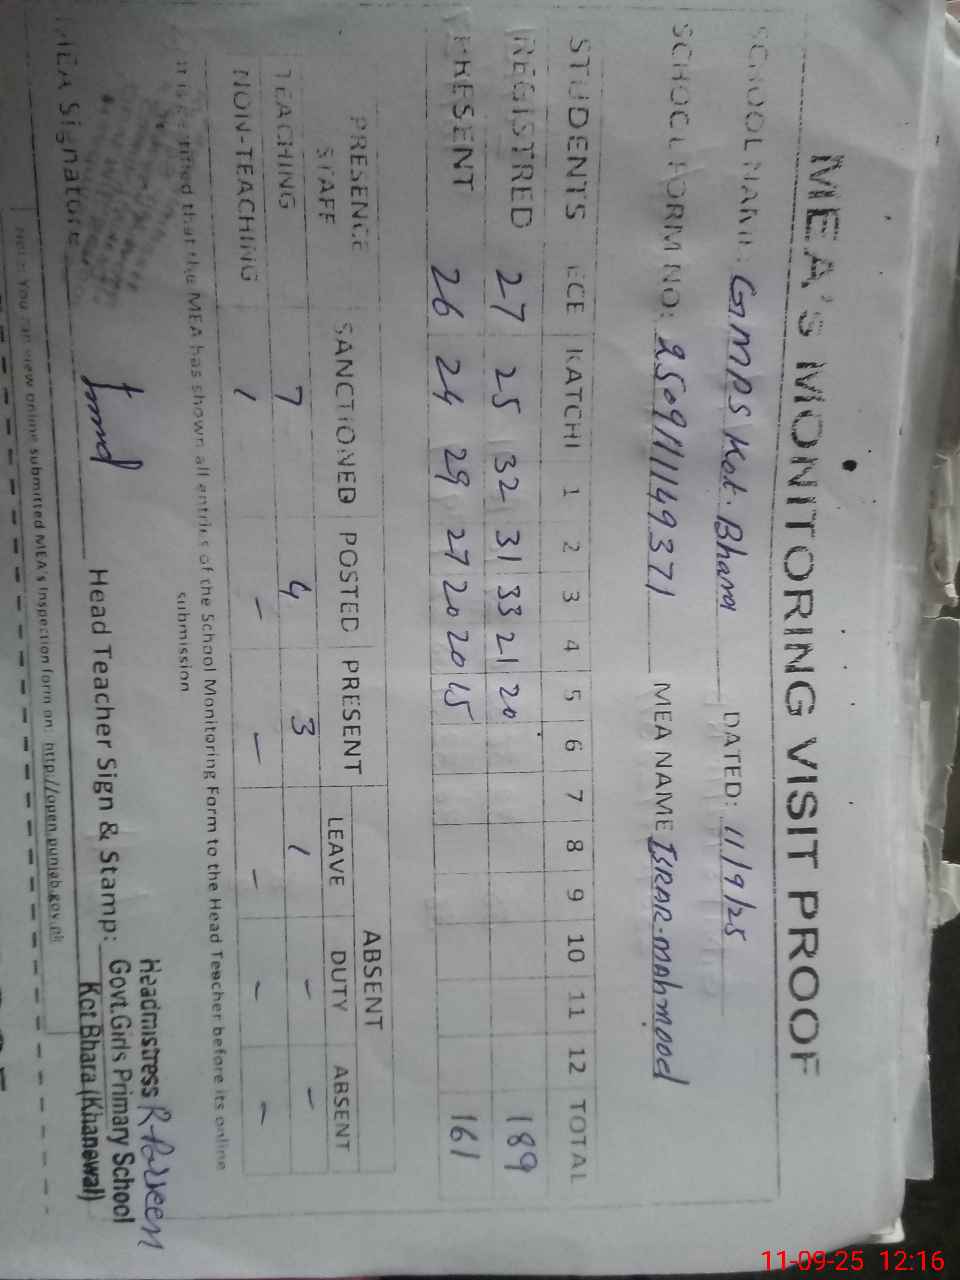 MEA'S MONITORING VISIT PROOF
SCHOOL NAME: GMPS Kot. Bhara DATED: 11/9/25
SCHOOL FORM NO: 2509111149371 MEA NAME ISRAR-MAHMOOD
STUDENTS ECE KATCHI 1 2 3 4 5 6 7 8 9 10 11 12 TOTAL
REGISTRED 27 25 32 31 33 21 20 189
PRESENT 26 24 29 27 20 20 15 161
PRESENCE STAFF SANCTIONED POSTED PRESENT ABSENT
LEAVE DUTY ABSENT
TEACHING 7 4 3 1 - -
NON-TEACHING 1 - - - - -
It is certified that the MEA has shown all entries of the School Monitoring Form to the Head Teacher before its online
submission
MEA Signature Head Teacher Sign & Stamp:
Headmistress R-Parveen
Govt.Girls Primary School
Kot Bhara (Khanewal)
Note: You can view online submitted MEA's Inspection form on: http://open.punjab.gov.pk
11-09-25 12:16